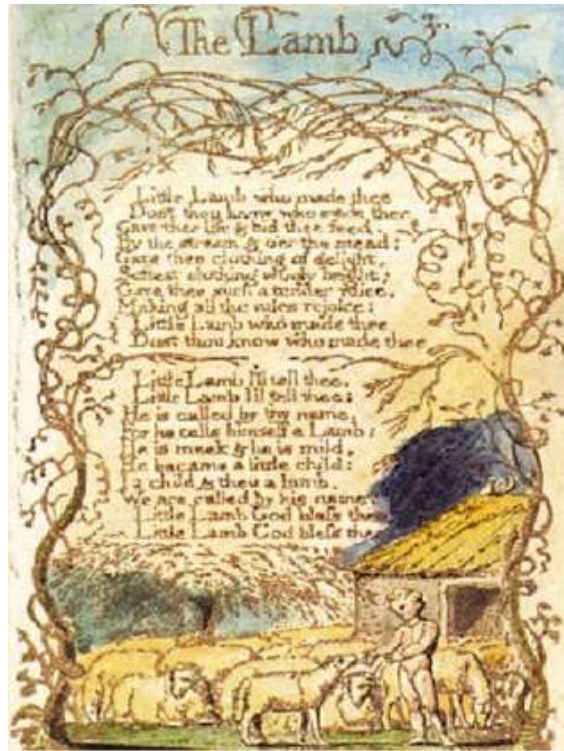 The Lamb
Little Lamb who made thee
Dost thou know who made thee
Gave thee life & bid thee feed.
By the stream & o'er the mead;
Gave thee clothing of delight,
Softest clothing wooly bright;
Gave thee such a tender voice,
Making all the vales rejoice:
Little Lamb who made thee
Dost thou know who made thee
Little Lamb I'll tell thee,
Little Lamb I'll tell thee:
He is called by thy name,
For he calls himself a Lamb:
He is meek & he is mild,
He became a little child:
I a child & thou a lamb,
We are called by his name.
Little Lamb God bless thee.
Little Lamb God bless thee.